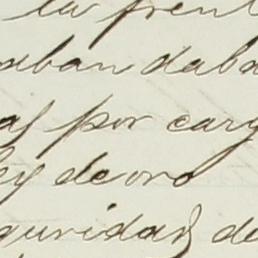 la frent
aban daba
as por carg
ley de oro
guridad de